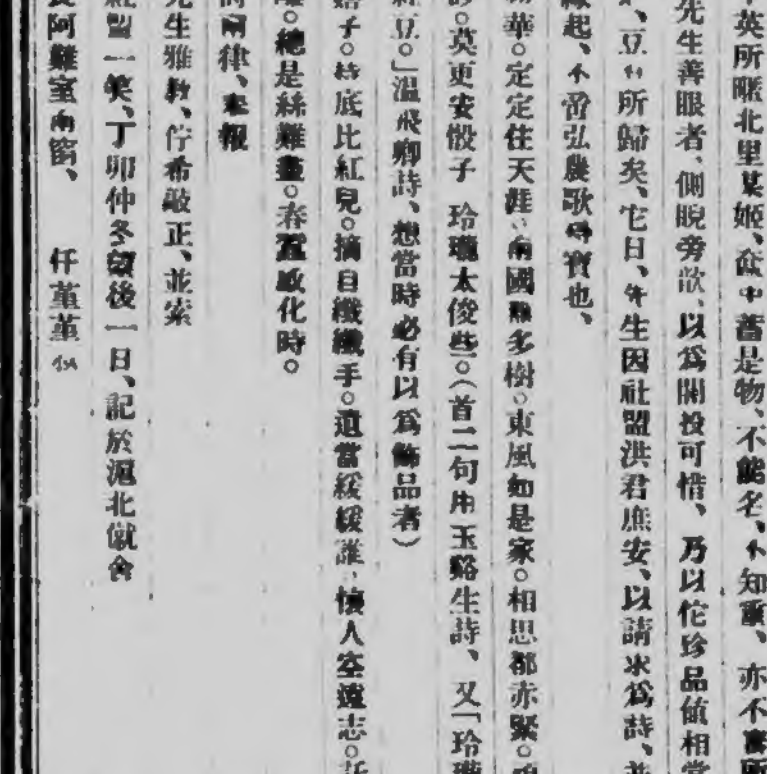 英所暱北里某姬、奩中蓄是物、不能名、不知重、亦不
先生善眼者、側睨旁歆、以爲閒投可惜、乃以佗珍品値相當
、豆有所歸矣、它日、先生因社盟洪君庶安、以請求爲詩、並
緣起、不啻弘農歌得寶也、
華。定定住天涯、南國幾多樹。東風如是家。相思都赤緊。
。莫更安骰子 玲瓏太俊些。（首二句用玉谿生詩、又「玲瓏
紅豆。」溫飛卿詩、想當時必有以爲飾品者）
子。底比紅兒。摘自纖纖手。遺當緩緩誰、懷人空遠志。託
。總是絲難盡。春蠶欲化時。
兩律、奉報
先生雅教、佇希敲正、並索
一笑、丁卯仲冬望後一日、記於滬北僦舍
阿難室南窗、 仟菫菫